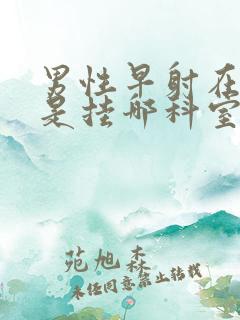 男性早射在
是挂哪科室
苑旭森
未经同意禁止转载